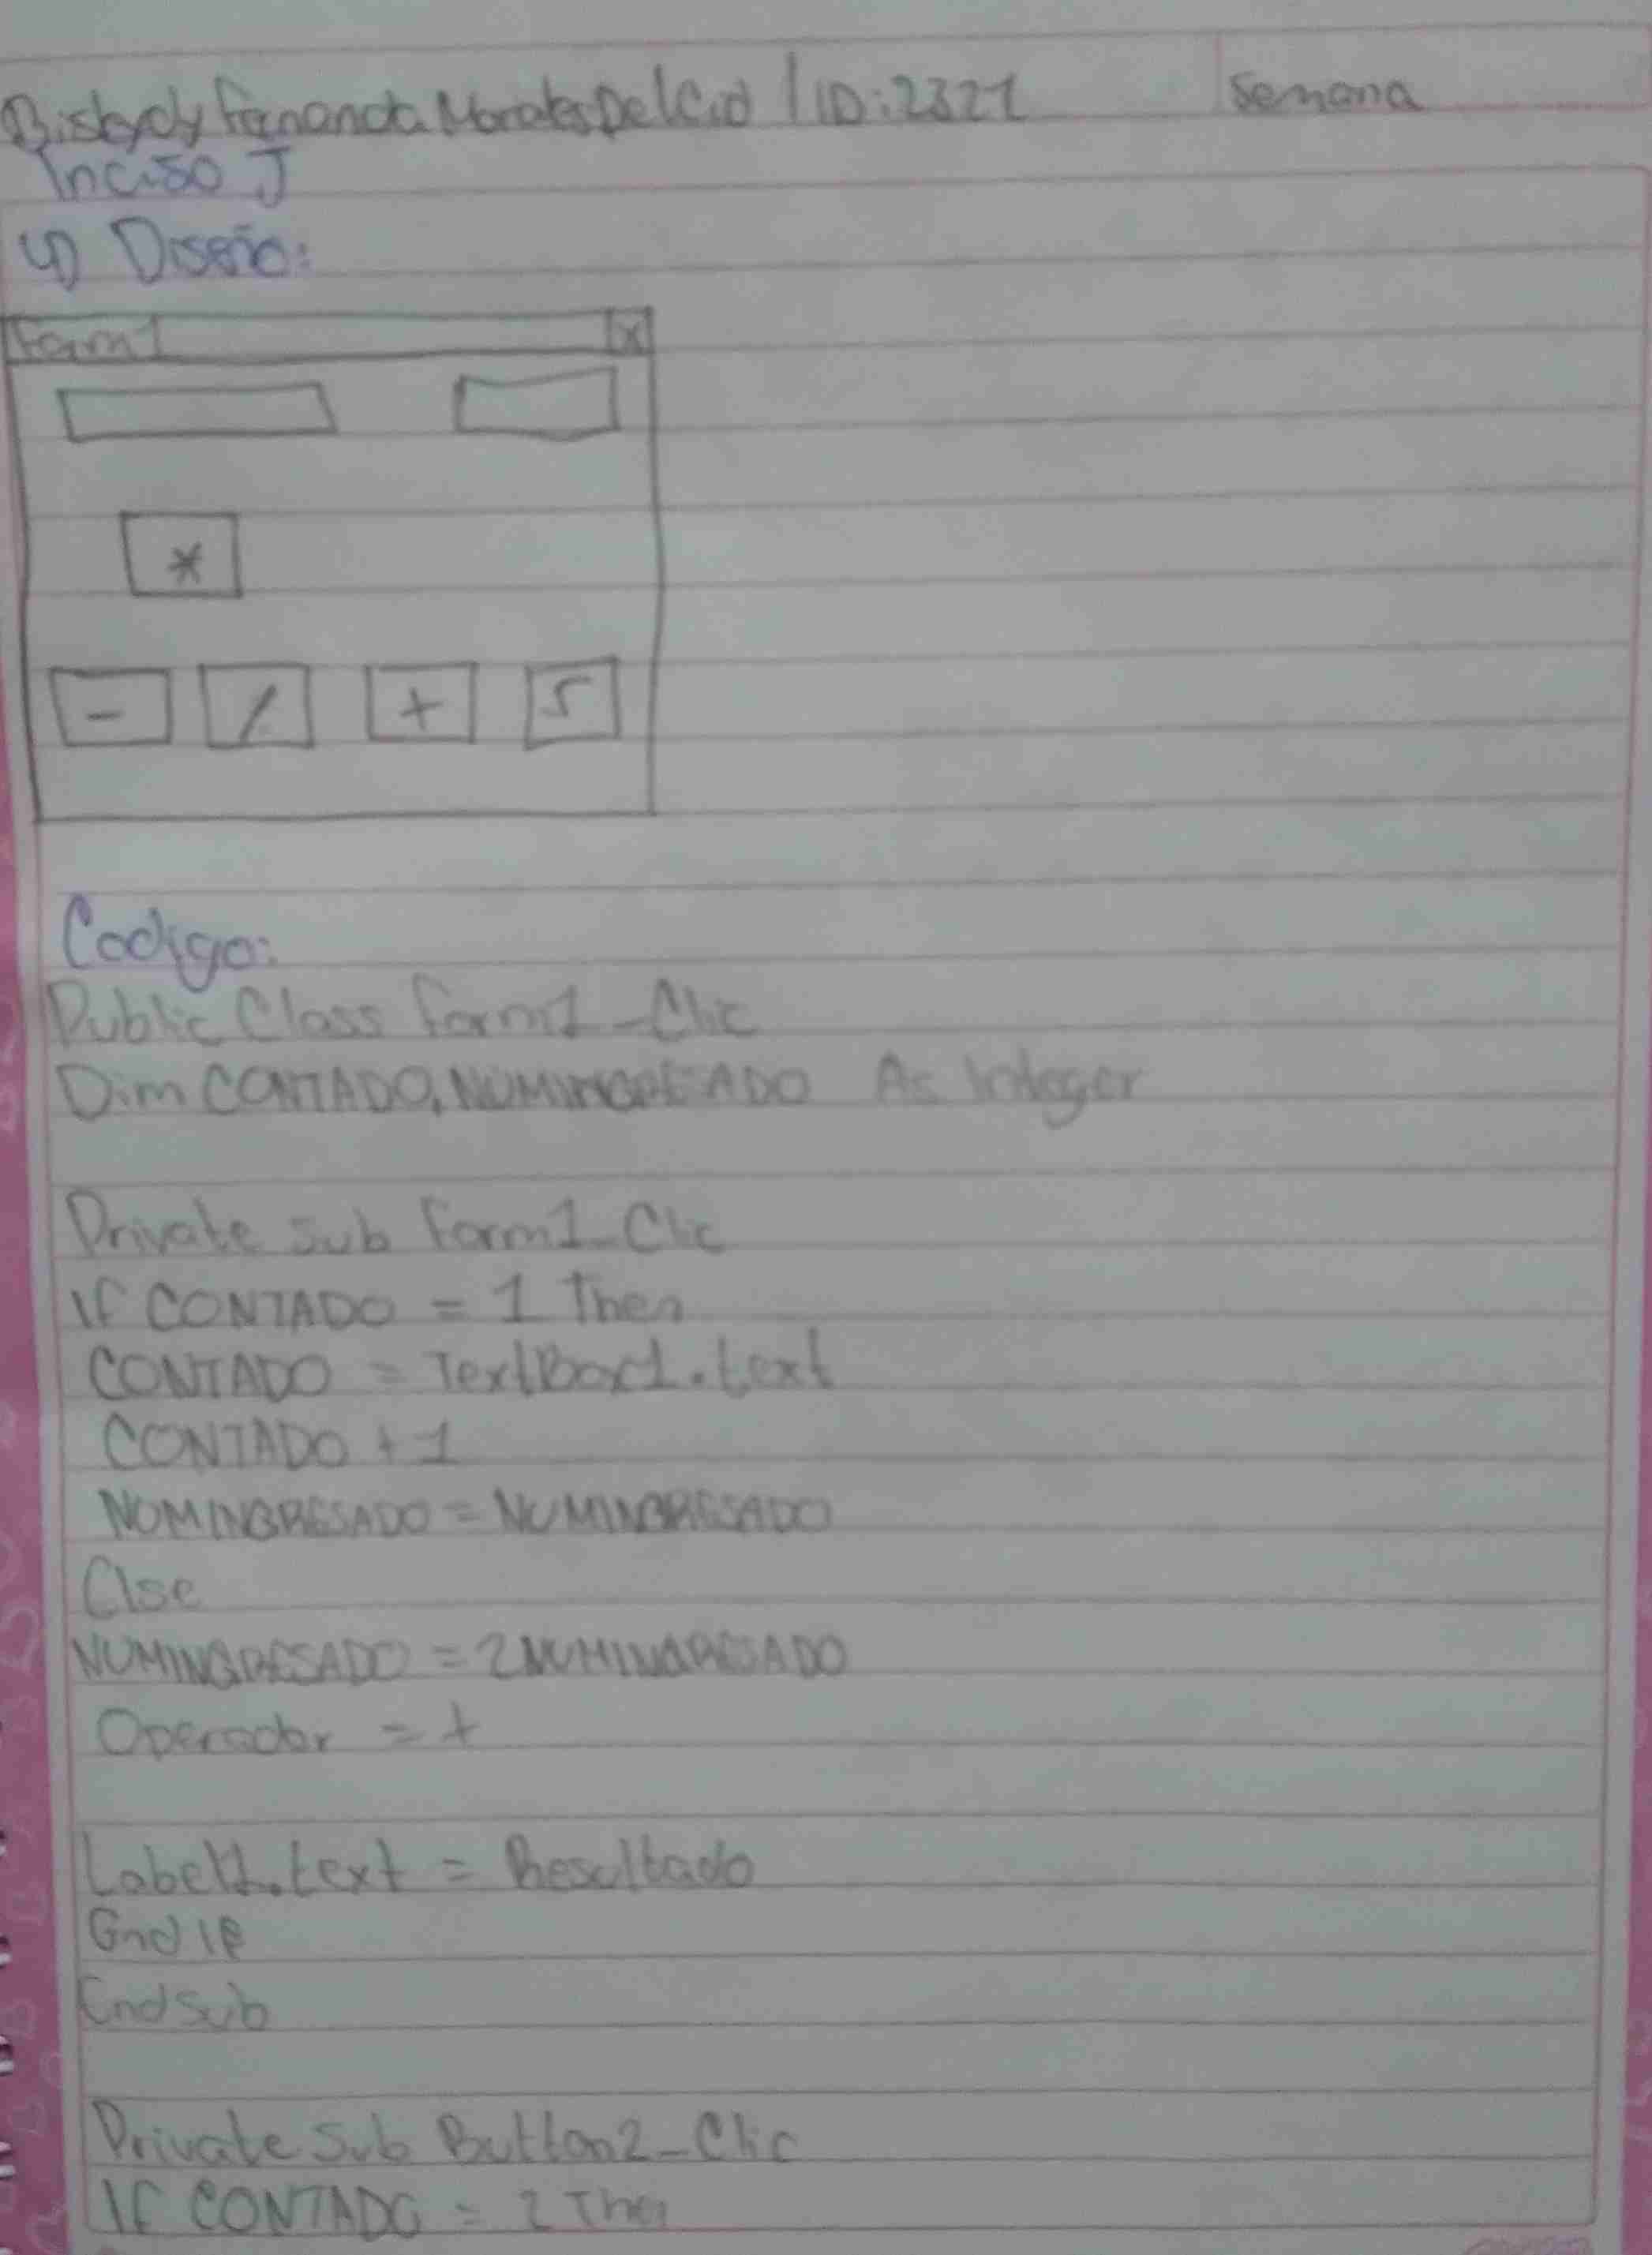 Fernanda Morales Del Cid | ID: 2321 Semana
Inciso J
4) Diseño:
Form1 X
*
- / + √
Codigo:
Public Class Form1_Clic
Dim CONTADO, NUMINGRESADO As Integer
Private Sub Form1_Clic
If CONTADO = 1 Then
CONTADO = TextBox1.text
CONTADO + 1
NUMINGRESADO = NUMINGRESADO
Else
NUMINGRESADO = 2NUMINGRESADO
Operador = +
Label1.text = Resultado
End If
End Sub
Private Sub Button2_Clic
If CONTADO = 2 Then